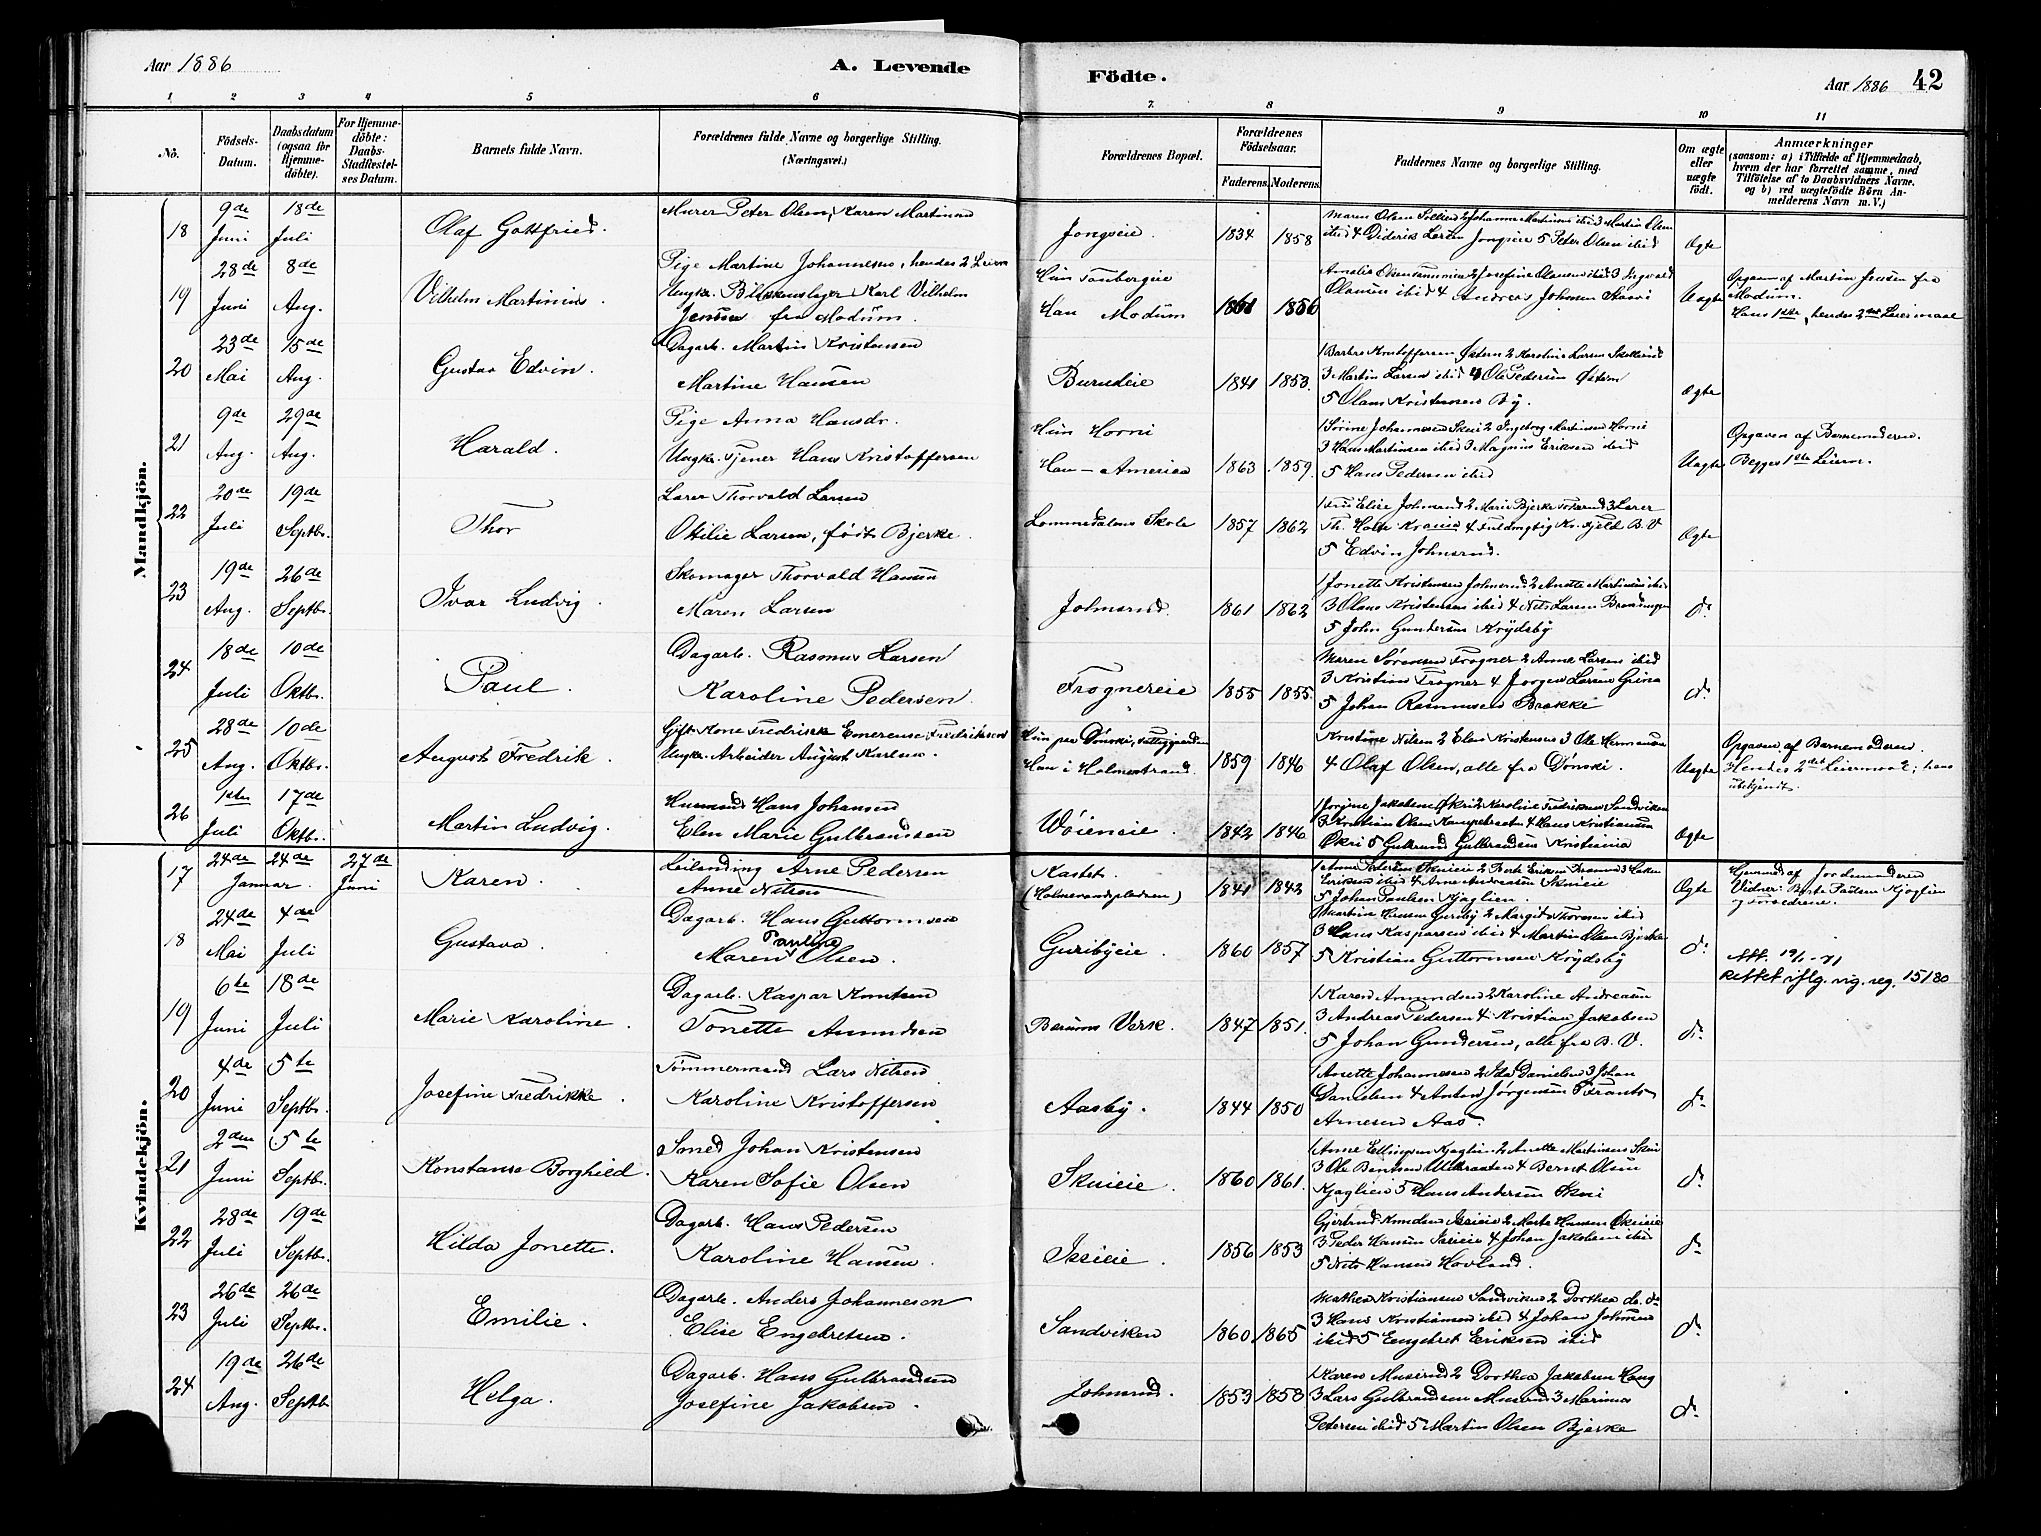 Aar 1886
A. Levende
Födte.
Aar 1886
42
1 2 3 4 5 6 7. 8 9 10 11
No.
Födsels-Datum.
Daabsdatum (ogsaa for Hjemmedöbte).
For Hjemmedöbte: Daabs-Stadfæstelses Datum.
Barnets fulde Navn.
Forældrenes fulde Navne og borgerlige Stilling. (Næringsvei.)
Forældrenes Bopæl.
Forældrenes Födselsaar.
Faderens. Moderens.
Faddernes Navne og borgerlige Stilling.
Om ægte eller uægte födt.
Anmærkninger
(saasom: a) i Tilfælde af Hjemmedaab, hvem der har forrettet samme, med Tilföielse af to Daabsvidners Navne, og b) ved uægtefödte Börn Anmelderens Navn m. V.)
Mandkjön.
18 9de Juni 18de Juli Olaf Gottfried. Murer Peter Olsen, Karen Martinsen Jongseie. 1834 1858 Maren Olsen 2 Johanne Martinsen ibid 3 Martin Olsen ibid 4 Diderik Larsen Jongseie 5 Peter Olsen ibid Ægte
19 28de Juni 8de Aug. Vilhelm Martinius. Pige Martine Johannesen, hendes 2 Leierm
Ungkr. Blikkenslager Karl Vilhelm Jensen fra Modum. Hun Tanbergeie Han Modum 1861 1856 3 Sigvald Olausen ibid 4 Andreas Johnsen Uægte Opgaven af Martin Jensen fra Modum. Hans 1ste, hendes 2det Leiermaal
20 23de Mai 15de Aug. Gustav Edvin. Dagarb. Martin Kristensen
Martine Hansen Burudeie 1841 1853. 1 Barbro Kristoffersen Østern 2 Karoline Larsen
3 Martin Larsen ibid 4 Ole Pedersen Østern
5 Olaus Kristensen By. Ægte
21 9de Aug. 29de Aug. Harald. Pige Anna Hansdr.
Ungkr. Tjener Hans Kristoffersen Hun Horni Han - Amerika 1863 1859. 1 Sørine Johannesen Skui 2 Ingeborg Martinsen Horni
3 Hans Martinsen ibid 3 Magnus Eriksen ibid
5 Hans Pedersen ibid Uægte Opgaven af Barnemoderen. Begges 1ste Leierm.
22 20de Juli 19de Septbr. Thor Lærer Thorvald Larsen
Otilie Larsen, født Bjerke. Lommedalens Skole 1857 1862 1 Fru Elise Johnsrud 2 Marie Bjerke 3 Lærer
Th. Holte 4 Fuldmgtig Kr. Fjeld B. V
5 Edvin Johnsrud. Ægte
23 19de Aug. 26de Septbr. Ivar Ludvig. Skomager Thorvald Hansen
Maren Larsen Johnsrud. 1861 1862 1 Jonette Kristensen Johnsrud 2 Anette Martinsen ibid
3 Olaus Kristensen ibid 4 Nils Larsen
5 John Gundersen Krydsby do
24 18de Juli 10de Oktbr. Paul. Dagarb. Rasmus Larsen
Karoline Pedersen Frognereie 1855 1855. Maren Sørensen Frogner 2 Anne Larsen ibid
3 Kristian Frogner 4 Jørgen Larsen Grina
5 Johan Rasmussen Brække do
25 28de Aug. 10de Oktbr. August Fredrik. Gift Kone Fredrikke Emerense Fredriksen
Ungkr. Arbeider August Karlsen Hun paa Dønski, Fattiggaarden
Han i Holmestrand. 1859 1846 Kristine Nilsen 2 Elen Kristensen 3 Ole Hermansen
4 Olaf Olsen, alle fra Dønski. Uægte Opgaven af Barnemoderen.
Hendes 2det Leiermaal; hans ubekjendt.
26 1ste Juli 17de Oktbr. Martin Ludvig. Husmand Hans Johansen
Elen Marie Gulbrandsen Wøieneie. 1842 1846 1 Jørgine Jakobsen Økri 2 Karoline Fredriksen Sandviken
3 Kristian Olsen 4 Hans Kristiansen
Økri 5 Gulbrand Gulbrandsen Kristiania Ægte
Kvindekjön.
17 24de Januar. 24de 27de Juni Karen. Leilending Arne Pedersen
Anne Nilsen Kastet. (Holmevandspladsen) 1841 1843 3 Haken
Eriksen ibid 4 Arne Andreassen Skuieie
5 Johan Paulsen Kjaglien. Ægte Hjemmed. af Jordemoderen
Vidner: Berte Paulsen Kjaglien
og Forældrene.
18 24de Mai 4de Juli Gustava. Dagarb. Hans Guttormsen
Maren Pauline Olsen. Guribyeie 1860 1857 Martine Hansen Guriby 2 Margit Thoresen ibid
3 Hans Kaspersen ibid 4 Martin Olsen Bjerke
5 Kristian Guttormsen Krydsby do Att. 19/1-71
rettet iflg. vig. reg. 15180
19 6te Juni 18de Juli Marie Karoline. Dagarb. Kaspar Knutsen
Tonette Amundsen Bærums Verk. 1847 1851. 1 Karen Amundsen 2 Karoline Andreasen
3 Andreas Pedersen 4 Kristian Jakobsen
5 Johan Gundersen, alle fra B. V. do
20 4de Juni 5te Septbr. Josefine Fredrikke. Tømmermand Lars Nilsen
Karoline Kristoffersen Aasby. 1844 1850 1 Anette Johannesen 2 Ida Danielsen 3 Johan
Danielsen 4 Anton Jørgensen 5 Frants
Arnesen Aas. do
21 2den Juni 5te Septbr. Konstanse Borghild. Smed Johan Kristensen
Karen Sofie Olsen Skuieie. 1860 1861. 1 Anne Ellingsen Kjaglien 2 Anette Martinsen Skui
3 Ole Bentsen 4 Bernt Olsen
Kjaglien 5 Hans Andersen Skui do
22 28de Juli 19de Septbr. Hilda Jonette. Dagarb. Hans Pedersen
Karoline Hansen. Isieie. 1856 1853 Gjertrud Knudsen Isieie 2 Marte Hansen Økrieie
3 Peder Hansen Isieie 4 Johan Jakobsen ibid
5 Nils Hansen Hovland. do
23 26de Juli 26de Septbr. Emilie. Dagarb. Anders Johannesen
Elise Engebretsen. Sandviken 1860 1865 Mathea Kristiansen Sandviken 2 Dorthea do. do
3 Hans Kristiansen ibid 4 Johan Johnsen
ibid 5 Engebret Eriksen ibid do
24 19de Aug. 26de Septbr Helga. Dagarb. Hans Gulbrandsen
Josefine Jakobsen. Johnsrud. 1853 1858 1 Karen Muserud 2 Dorthea Jakobsen Haug
3 Lars Gulbrandsen Muserud 3 Marinus
Petersen ibid 5 Martin Olsen Bjerke do